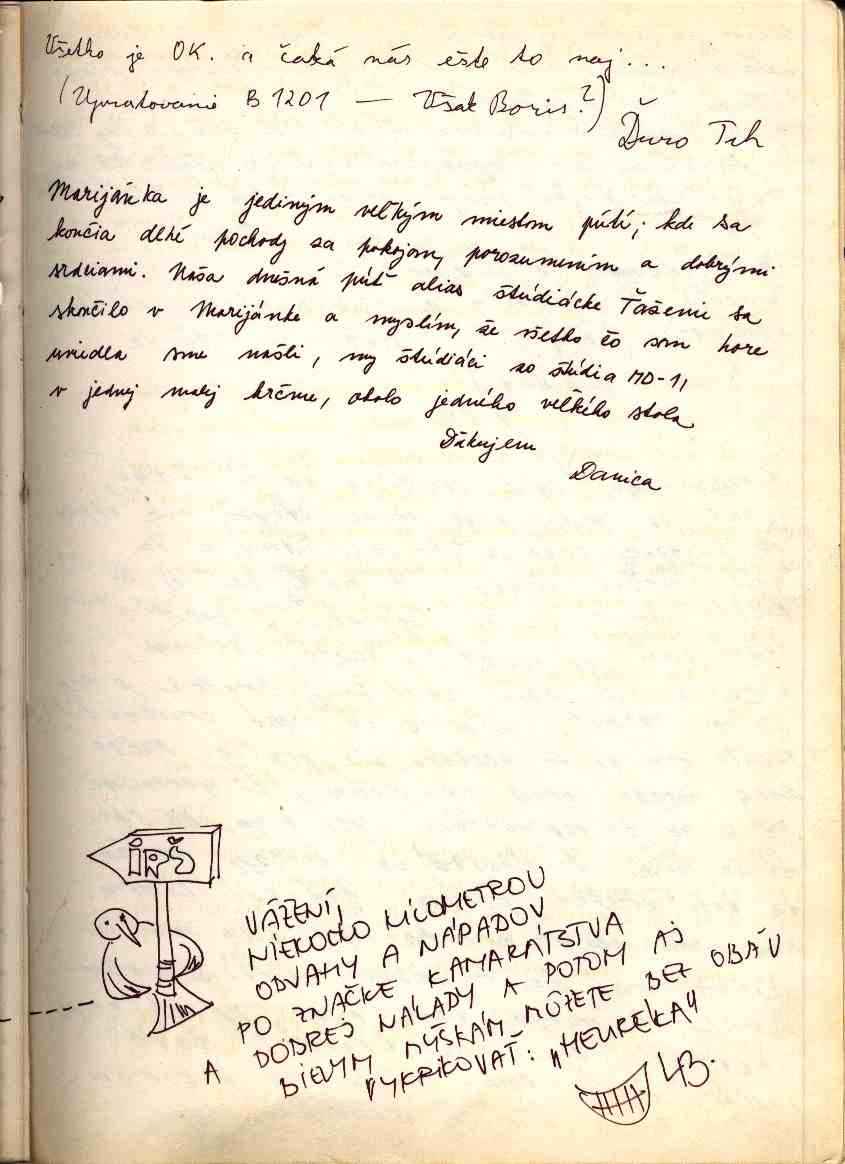 Všetko je OK. a čaká nás ešte to naj...
(Upratovanie B 1201 — Však Boris?)
Ďuro Trh
Marijánka je jediným veľkým miestom pútí, kde sa
končia dlhé pochody za pokojom, porozumením a dobrými
srdciami. Naša dnešná púť alias štúdiácke Ťaženie sa
skončilo v Marijánke a myslím, že všetko čo sem hore
uviedla sme našli, my štúdiáci zo štúdia MD-1,
v jednej malej krčme, okolo jedného veľkého stola
Ďakujem
Danica
IRŠ
VÁŽENÍ,
NIEKOĽKO KILOMETROV
ODVAHY A NÁPADOV
PO ZNAČKE KAMARÁTSTVA
A DOBREJ NÁLADY A POTOM AJ
BIELYM MYŠKÁM MÔŽETE BEZ OBÁV
VYKRIKOVAŤ: „HEURÉKA"
LB.